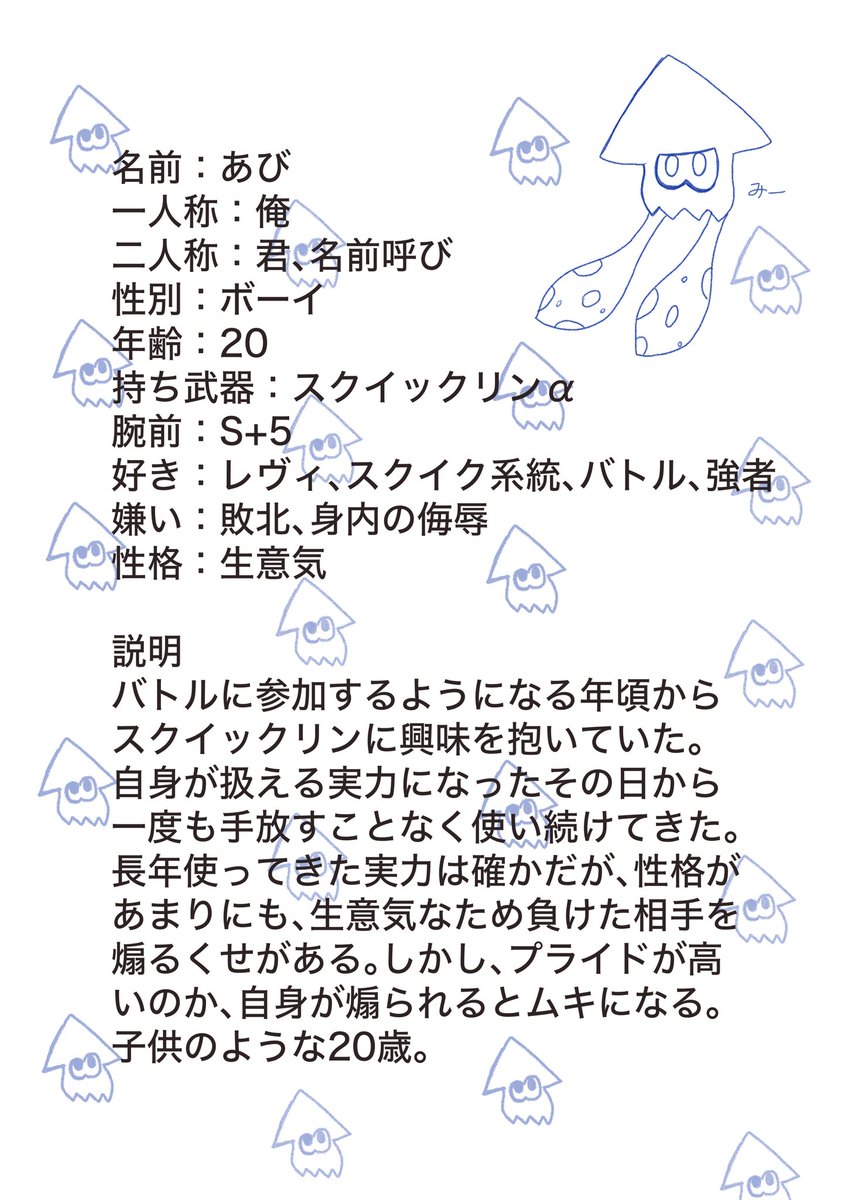 みー
名前：あび
一人称：俺
二人称：君、名前呼び
性別：ボーイ
年齢：20
持ち武器：スクイックリンα
腕前：S+5
好き：レヴィ、スクイク系統、バトル、強者
嫌い：敗北、身内の侮辱
性格：生意気
説明
バトルに参加するようになる年頃から
スクイックリンに興味を抱いていた。
自身が扱える実力になったその日から
一度も手放すことなく使い続けてきた。
長年使ってきた実力は確かだが、性格が
あまりにも、生意気なため負けた相手を
煽るくせがある。しかし、プライドが高
いのか、自身が煽られるとムキになる。
子供のような20歳。